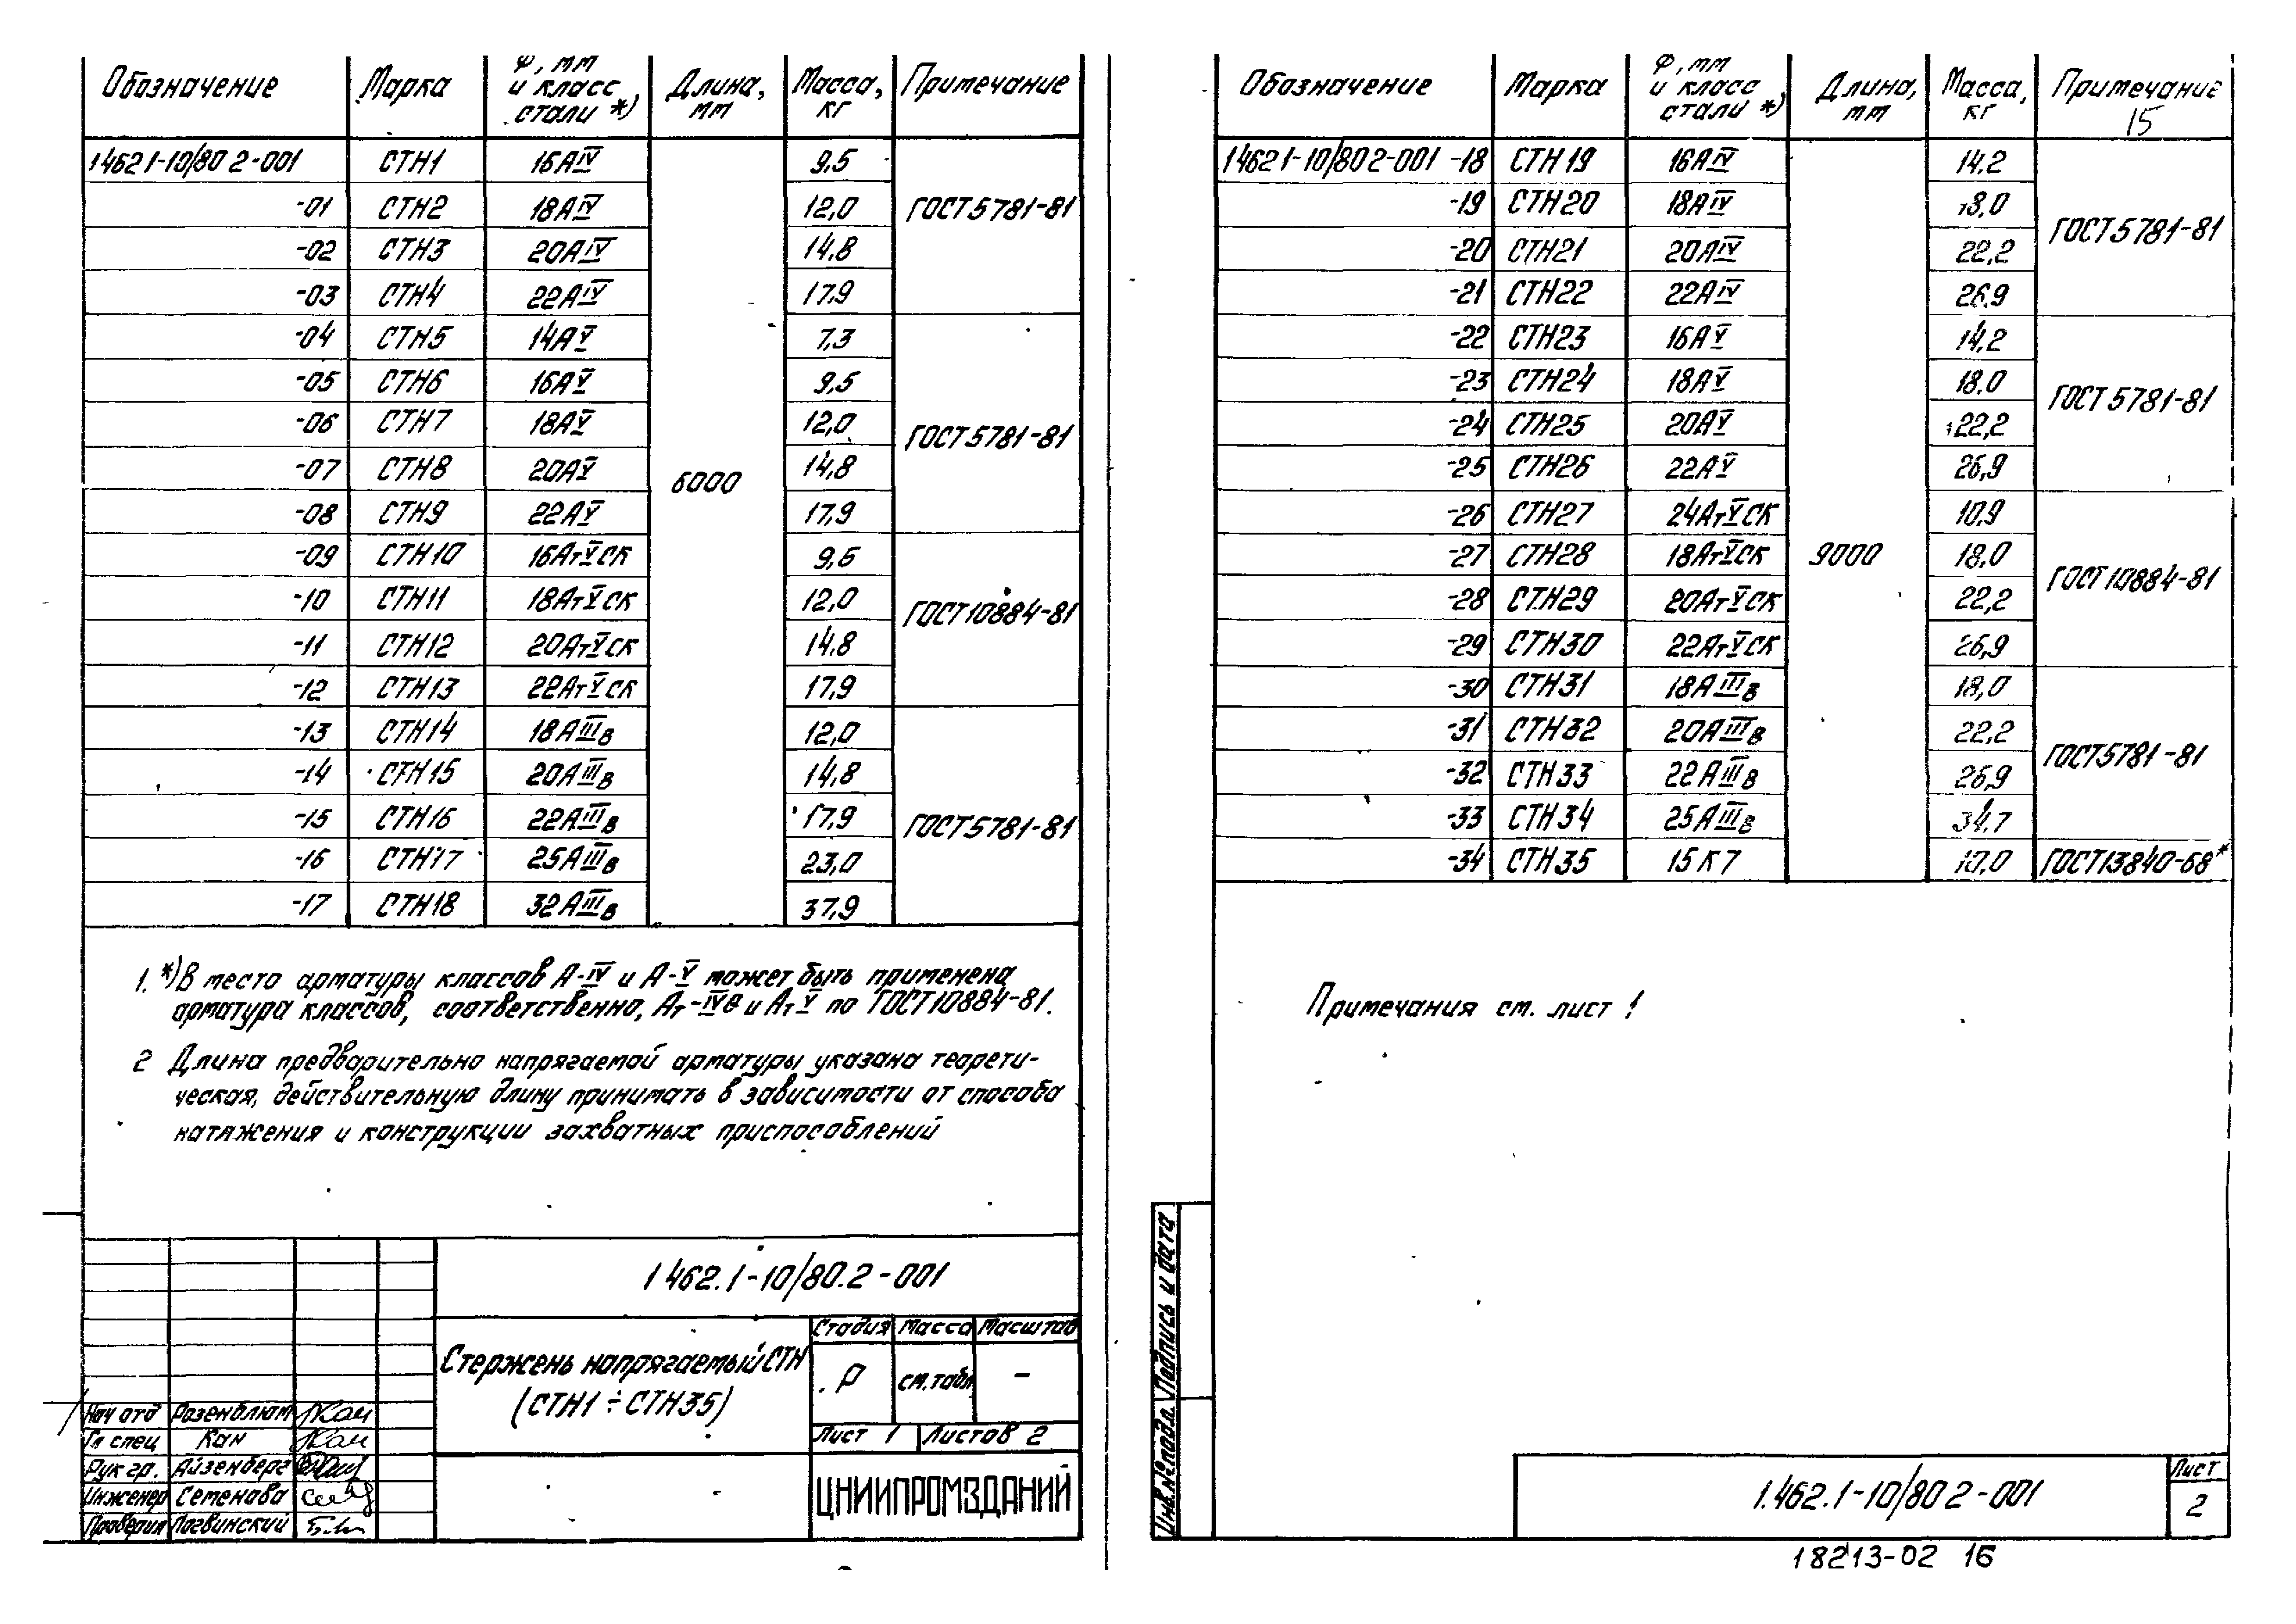 Обозначение Марка Ф, мм и класс стали *) Длина, мм Масса, кг Примечание
1 462 1-10/80 2-001 СТН1 16АIV 6000 9,5 ГОСТ 5781-81
-01 СТН2 18АIV 12,0
-02 СТН3 20АIV 14,8
-03 СТН4 22АIV 17,9
-04 СТН5 14АV 7,3 ГОСТ 5781-81
-05 СТН6 16АV 9,5
-06 СТН7 18АV 12,0
-07 СТН8 20АV 14,8
-08 СТН9 22АV 17,9
-09 СТН10 16АтVСК 9,5 ГОСТ 10884-81
-10 СТН11 18АтVСК 12,0
-11 СТН12 20АтVСК 14,8
-12 СТН13 22АтVСК 17,9
-13 СТН14 18АIIIв 12,0 ГОСТ 5781-81
-14 СТН15 20АIIIв 14,8
-15 СТН16 22АIIIв 17,9
-16 СТН17 25АIIIв 23,0
-17 СТН18 32АIIIв 37,9
1. *) В место арматуры классов А-IV и А-V может быть применена
арматура классов, соответственно, Ат-IVС и Ат V по ГОСТ 10884-81.
2 Длина предварительно напрягаемой арматуры указана теорети-
ческая, действительную длину принимать в зависимости от способа
натяжения и конструкции захватных приспособлений
1 462.1-10/80.2-001
Стержень напрягаемый СТН
(СТН1 ÷ СТН35)
Стадия Масса Масштаб
Р см. табл –
Лист 1 Листов 2
ЦНИИПРОМЗДАНИЙ
Нач отд Розенблюм
Гл спец Кан
Рук гр. Айзенберг
Инженер Семенова
Проверил Логвинский
Обозначение Марка Ф, мм и класс стали *) Длина, мм Масса, кг Примечание
15
1 462 1-10/80 2-001 -18 СТН19 16АIV 9000 14.2 ГОСТ 5781-81
-19 СТН20 18АIV 18,0
-20 СТН21 20АIV 22,2
-21 СТН22 22АIV 26,9
-22 СТН23 16АV 14,2 ГОСТ 5781-81
-23 СТН24 18АV 18,0
-24 СТН25 20АV 22,2
-25 СТН26 22АV 26,9
-26 СТН27 24АтVСК 10,9 ГОСТ 10884-81
-27 СТН28 18АтVСК 18,0
-28 СТН29 20АтVСК 22,2
-29 СТН30 22АтVСК 26,9
-30 СТН31 18АIIIв 18,0 ГОСТ 5781-81
-31 СТН32 20АIIIв 22,2
-32 СТН33 22АIIIв 26,9
-33 СТН34 25АIIIв 34,7
-34 СТН35 15К7 10,0 ГОСТ 13840-68*
Примечания см. лист 1
Инв. № подл. Подпись и дата
1.462.1-10/80 2-001
Лист
2
18213-02 16